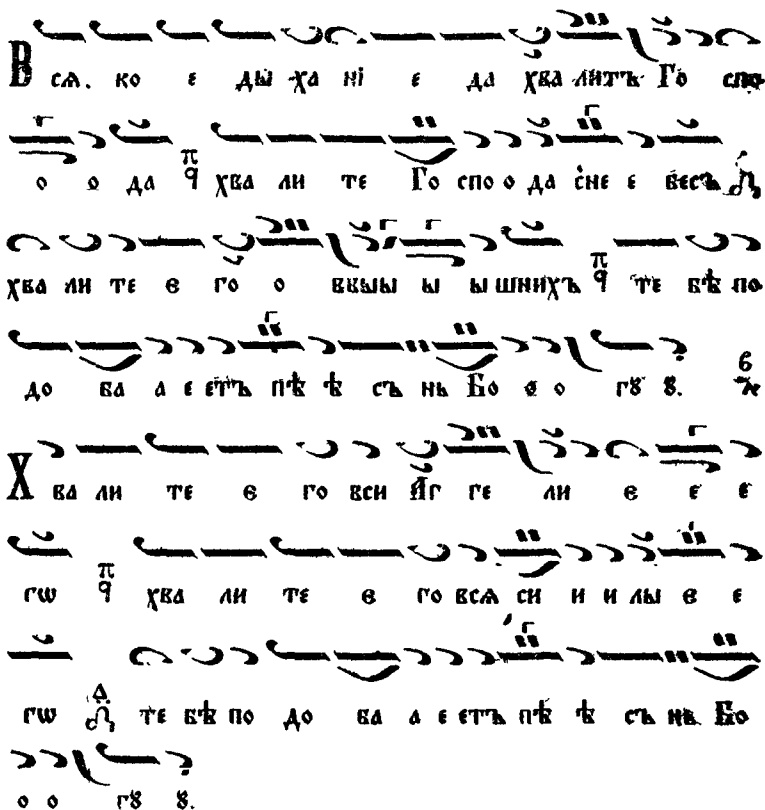 Всѧ. ко е ды ха нї е да хва литъ Го спо
о о да π ч хва ли те Го спо о да с не е бесъ
хва ли те є го о ввыы ы ы шнихъ π ч те бѣ по
до ба а е етъ пѣ ѣ съ нь Бо о о гꙋ ꙋ.
Хва ли те є го вси Аг ге ли є є є
гѡ π ч хва ли те є го всѧ си и и лы є є
гѡ Δ те бѣ по до ба а е етъ пѣ ѣ съ нь Бо
о о гꙋ ꙋ.